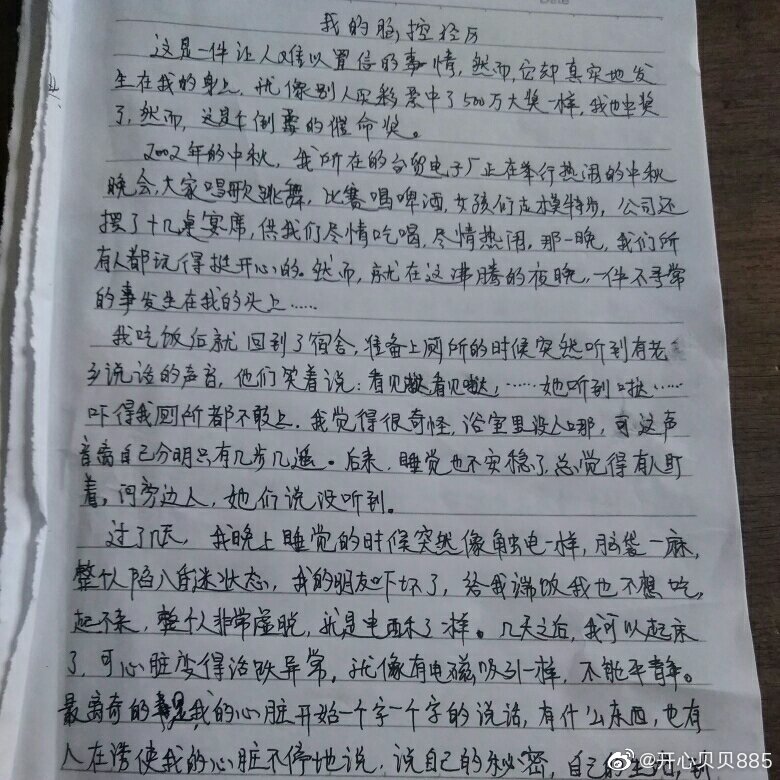 我的脑控经历
这是一件让人难以置信的事情，然而，它却真实地发
生在我的身上，就像别人买彩票中了500万大奖一样，我也中奖
了，然而，这是个倒霉的催命奖。
2002年的中秋，我所在的台贸电子厂正在举行热闹的中秋
晚会，大家唱歌跳舞，比赛喝啤酒，女孩们走模特步，公司还
摆了十几桌宴席，供我们尽情吃喝，尽情热闹，那一晚，我们所
有人都玩得挺开心的。然而，就在这沸腾的夜晚，一件不寻常
的事发生在我的头上……
我吃饭后就回到了宿舍，准备上厕所的时候突然听到有老
乡说话的声音，他们笑着说：看见哒看见哒，……她听到哒……
吓得我厕所都不敢上，我觉得很奇怪，浴室里没人哪，可这声
音离自己分明只有几步几遥。后来，睡觉也不安稳了，总觉得有人盯
着，问旁边人，她们说没听到。
过了几天，我晚上睡觉的时候突然像触电一样，脑袋一麻，
整个人陷入昏迷状态，我的朋友吓坏了，给我端饭我也不想吃，
起不来，整个人非常虚脱，就是电酥了一样。几天之后，我可以起床
了，可心脏变得活跃异常，就像有电磁吸引一样，不能平静。
最离奇的是我的心脏开始一个字一个字的说话，有什么东西，也有
人在诱使我的心脏不停地说，说自己的秘密，自己的生
@开心贝贝885